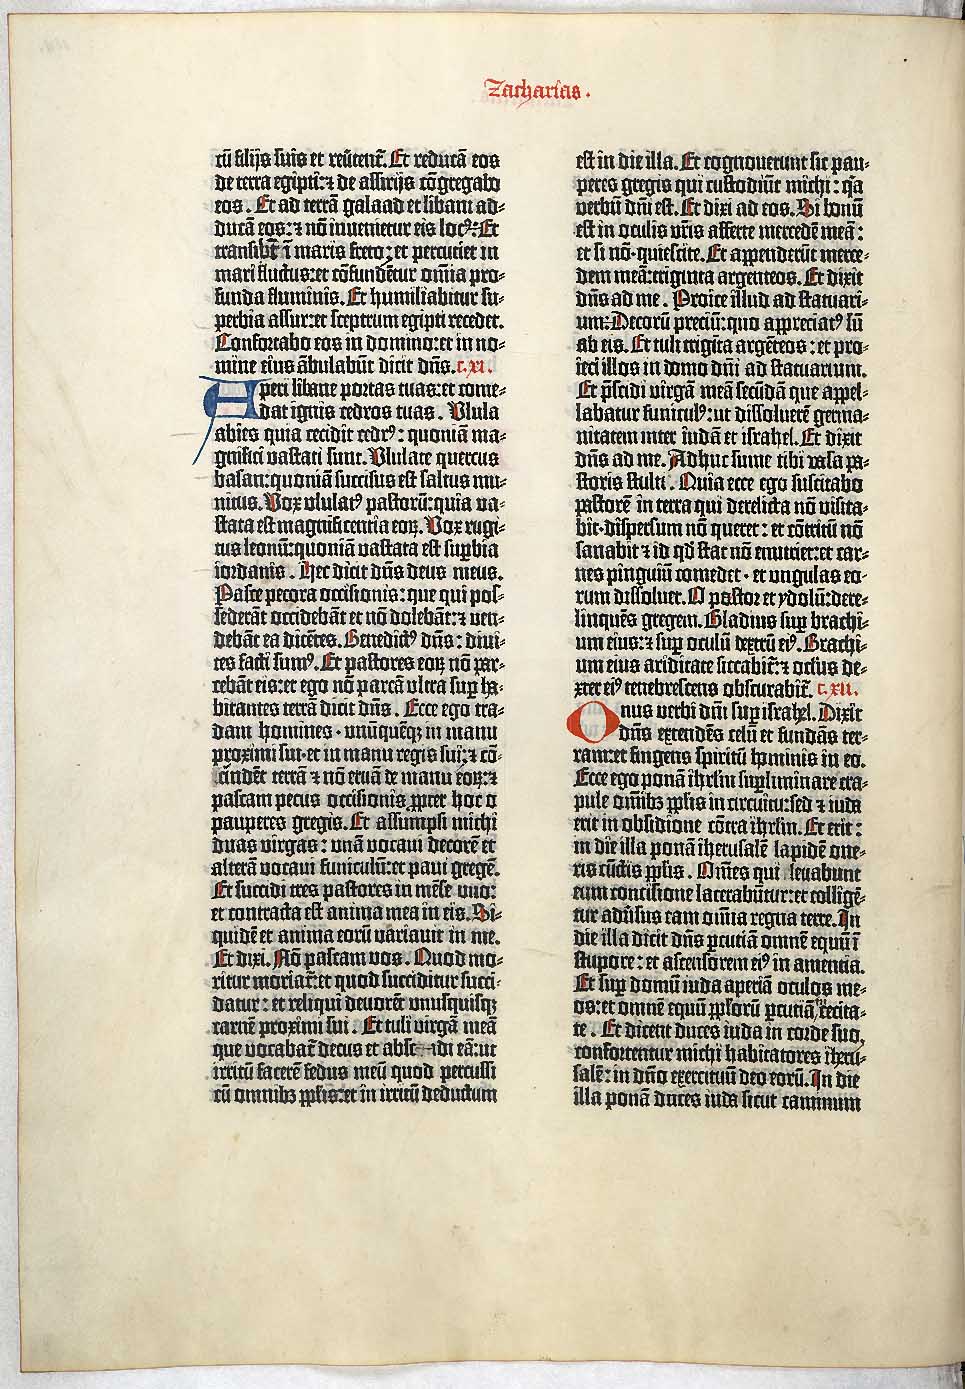 Zacharias.
cū filijs suis et reūtent᷑. Et reducā eos
de terra egipti: ⁊ de assirijs cōgregabo
eos. Et ad terrā galaad et libani ad-
ducā eos: ⁊ nō inuenietur eis locꝰ. Et
transibit ī maris freto: et percutiet in
mari fluctus: et cōfundētur om̄ia pro-
funda fluminis. Et humiliabitur su-
perbia assur: et sceptrum egipti recedet.
Confortabo eos in domino: et in no-
mine eius ābulabūt dicit dn̄s. c. xi.
Aperi libane portas tuas: et come-
dat ignis cedros tuas. Vlula
abies quia cecidit cedrꝰ: quoniā ma-
gnifici vastati sunt. Vlulate quercus
basan: quoniā succisus est saltus mu-
nitus. Vox vlulatꝰ pastorū: quia va-
stata est magnificentia eoꝝ. Vox rugi-
tus leonū: quoniā vastata est suꝑbia
iordanis. Hec dicit dn̄s deus meus.
Pasce pecora occisionis: que qui pos-
sederāt occidebāt et nō dolebāt: ⁊ ven-
debāt ea dicētes. Benedictꝰ dn̄s: diui-
tes facti sumꝰ. Et pastores eoꝝ nō par-
cebāt eis: et ego nō parcā vltra suꝑ ha-
bitantes terrā dicit dn̄s. Ecce ego tra-
dam homines · vnūquēqꝫ in manu
proximi sui · et in manu regis sui: ⁊ cō-
cindēt terrā ⁊ nō eruā de manu eoꝝ: ⁊
pascam pecus occisionis ꝓpter hoc o
pauperes gregis. Et assumpsi michi
duas virgas: vnā vocaui decorē et
alterā vocaui funiculū: et paui gregē.
Et succidi tres pastores in mēse vno:
et contracta est anima mea in eis. Si-
quidē et anima eorū variauit in me.
Et dixi. Nō pascam vos. Quod mo-
ritur moriat᷑: et quod succiditur succi-
datur: et reliqui deuorēt vnusquisqꝫ
carnē proximi sui. Et tuli virgā meā
que vocabat᷑ decus et absc-idi eā: ut
irritū facerē fedus meū quod percussi
cū omnibꝫ ꝓplis: et in irritū deductum
est in die illa. Et cognouerunt sic pau-
peres gregis qui custodiūt michi: qa
verbū dn̄i est. Et dixi ad eos. Si bonū
est in oculis vr̄is afferte mercedē meā:
et si nō · quiescite. Et appenderūt merce-
dem meā: triginta argenteos. Et dixit
dn̄s ad me. Proice illud ad statuari-
um: Decorū preciū: quo appreciatꝰ sū
ab eis. Et tuli trigīta argēteos: et pro-
ieci illos in domo dn̄i ad statuarium.
Et p̄scidi virgā meā secūdā que appel-
labatur funiculꝰ: ut dissoluerē germa-
nitatem inter iudā et israhel. Et dixit
dn̄s ad me. Adhuc sume tibi vasa pa-
storis stulti. Quia ecce ego suscitabo
pastorē in terra qui derelicta nō visita-
bit · dispersum nō queret: et cōtritū nō
sanabit ⁊ id qd̄ stat nō enutriet: et car-
nes pinguiū comedet · et vngulas eo-
rum dissoluet. O pastor et ydolū: dere-
linquēs gregem. Gladius suꝑ brachi-
um eius: ⁊ suꝑ oculū dextrū eiꝰ. Brachi-
um eius ariditate siccabit᷑: ⁊ oclus de-
xter eiꝰ tenebrescens obscurabit᷑. c. xii.
Onus verbi dn̄i suꝑ israhel. Dixit
dn̄s extendēs celū et fundās ter-
ram: et fingens spiritū hominis in eo.
Ecce ego ponā ihrl̄m suꝑliminare cra-
pule om̄ibꝫ ꝓplis in circuitu: sed ⁊ iuda
erit in obsidione cōtra ihrl̄m. Et erit:
in die illa ponā iherusalē lapidē one-
ris cūctis ꝓplis. Om̄es qui leuabunt
eum concisione lacerabūtur: et colligē-
tur adūsus eam om̄ia regna terre. In
die illa dicit dn̄s ꝑcutiā omnē equū ī
stupore: et ascensorem eiꝰ in amentia.
Et suꝑ domū iuda aperiā oculos me-
os: et omnē equū ꝓplorū ꝑcutiā cecita-
te. Et dicent duces iuda in corde suo,
confortentur michi habitatores iheru-
salē: in dn̄o exercituū deo eorū. In die
illa ponā duces iuda sicut caminum